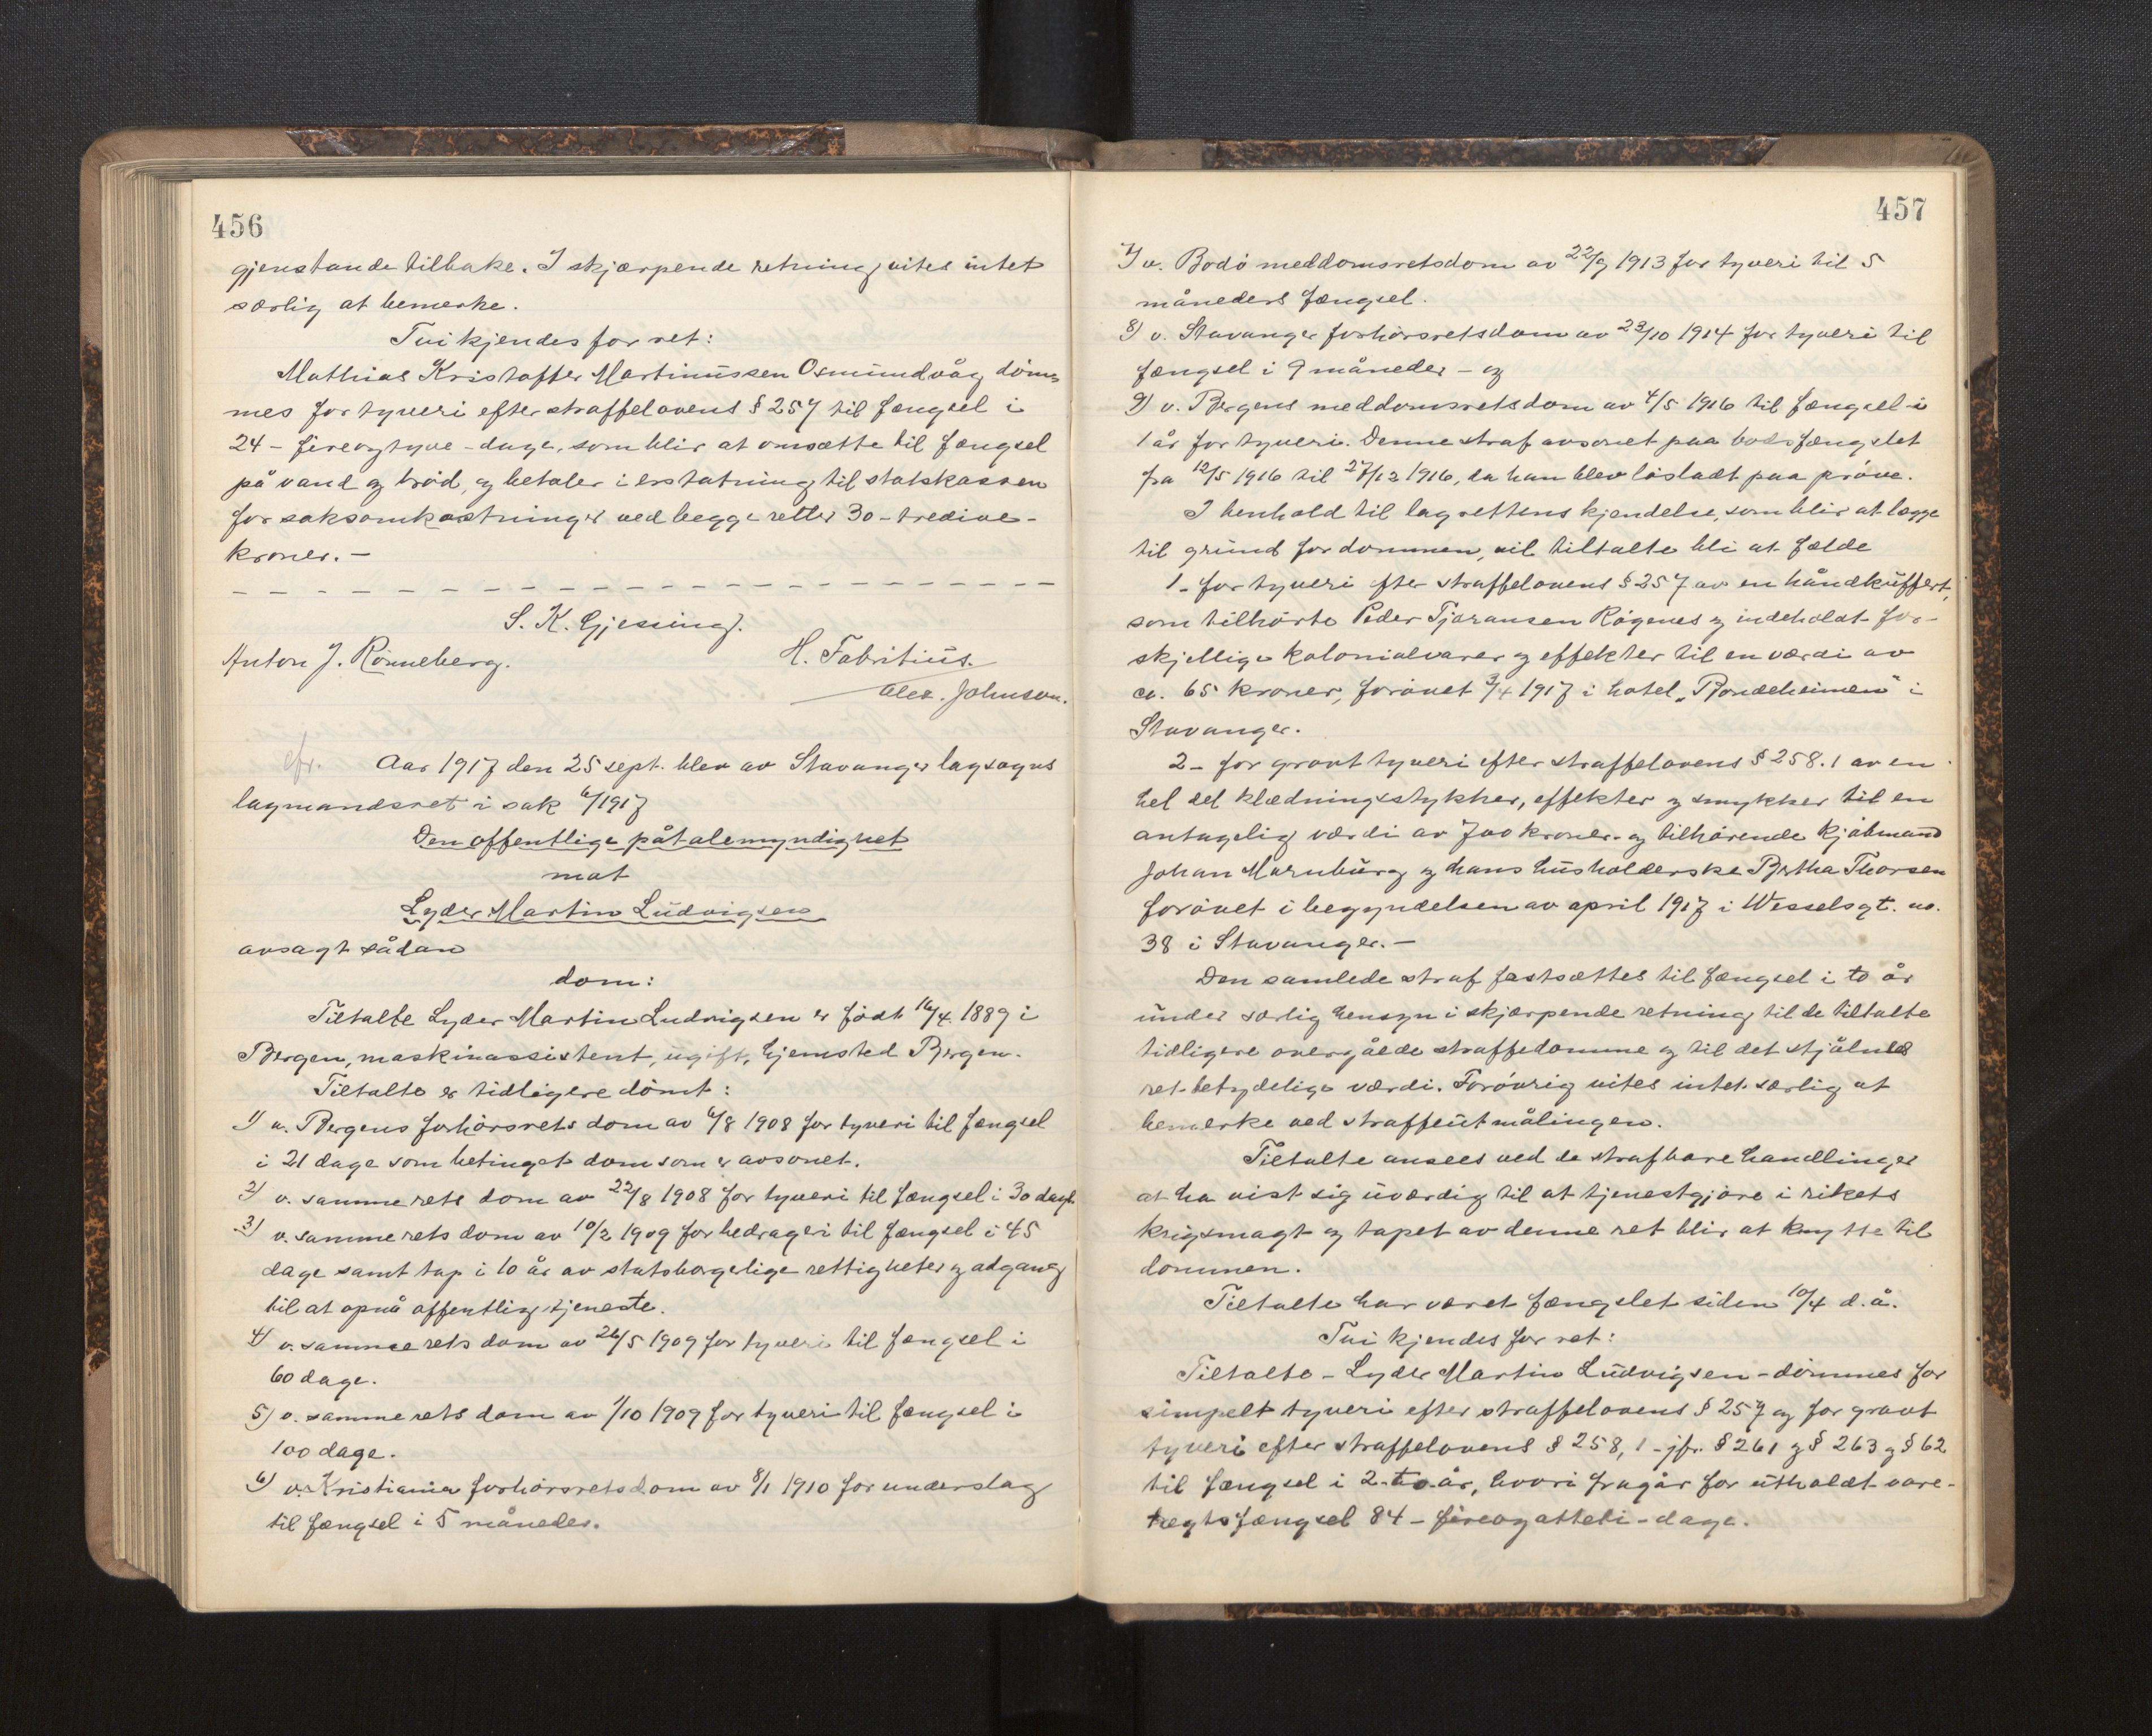 456
gjenstande tilbake. I skjærpende retning vites intet
særlig at bemerke.
Tvi kjendes for ret:
Mathias Kristoffer Martinussen Osmundvåg døm-
mes for tyveri efter straffelovens § 257 til fængsel i
24 - fireogtyve - dage, som blir at omsætte til fængsel
på vand og brød, og betaler i erstatning til statskassen
for saksomkostninger ved begge retter 30 - tredive -
kroner. -
S. K. Gjessing.
Anton J. Rønneberg. H. Fabritius.
Alex. Johnson.
cfr. Aar 1917 den 25 sept. blev av Stavanger lagsogns
lagmandsret i sak 6/1917
Den offentlige påtalemyndighet
mot
Lyder Martin Ludvigsen
avsagt sådan
dom:
Tiltalte Lyder Martin Ludvigsen er født 16/4 1889 i
Bergen, maskinassistent, ugift, hjemsted Bergen.
Tiltalte er tidligere dømt:
1) v. Bergens forhørsrets dom av 6/8 1908 for tyveri til fængsel
i 21 dage som betinget dom som er avsonet.
2) v. samme rets dom av 22/8 1908 for tyveri til fængsel i 30 dage
3) v. samme rets dom av 10/2 1909 for bedrageri til fængsel i 45
dage samt tap i 10 år av statsborgerlige rettigheter og adgang
til at opnå offentlig tjeneste.
4) v. samme rets dom av 26/5 1909 for tyveri til fængsel i
60 dage.
5) v. samme rets dom av 1/10 1909 for tyveri til fængsel i
100 dage.
6) v. Kristiania forhørsretsdom av 8/1 1910 for underslag
til fængsel i 5 måneder.
457
7) v. Bodø meddomsretsdom av 22/9 1913 for tyveri til 5
måneders fængsel.
8) v. Stavanger forhørsretsdom av 23/10 1914 for tyveri til
fængsel i 9 måneder - og
9) v. Bergens meddomsretsdom av 4/5 1916 til fængsel i
1 år for tyveri. Denne straf avsonet paa bodsfængslet
fra 12/5 1916 til 27/12 1916, da han blev løsladt paa prøve.
I henhold til lagrettens kjendelse, som blir at lægge
til grund for dommen, vil tiltalte bli at fælde
1 - for tyveri efter straffelovens § 257 av en håndkuffert,
som tilhørte Peder Tjøransen Røgenes og indeholdt for-
skjellige kolonialvarer og effekter til en værdi av
ca. 65 kroner, forøvet 3/4 1917 i hotel "Bondeheimen" i
Stavanger.
2 - for grovt tyveri efter straffelovens § 258.1 av en
hel del klædningsstykker, effekter og smykker til en
antagelig værdi av 700 kroner og tilhørende kjøbmand
Johan Marnburg og hans husholderske Bertha Thorsen
forøvet i begyndelsen av april 1917 i Wesselsgt. no.
38 i Stavanger. -
Den samlede straf fastsættes til fængsel i to år
under særlig hensyn i skjærpende retning til de tiltalte
tidligere overgåede straffedomme og til det stjålnes
ret betydelige værdi. Forøvrig vites intet særlig at
bemerke ved straffeutmålingen.
Tiltalte ansees ved de strafbare handlinger
at ha vist sig uværdig til at tjenestgjøre i rikets
krigsmagt og tapet av denne ret blir at knytte til
dommen.
Tiltalte har været fængslet siden 10/4 d.å.
Tvi kjendes for ret:
Tiltalte - Lyder Martin Ludvigsen - dømmes for
simpelt tyveri efter straffelovens § 257 og for grovt
tyveri efter straffelovens § 258, 1 - jfr. § 261 og § 263 og § 62
til fængsel i 2 - to år, hvori fragår for utholdt vare-
tægtsfængsel 84 - fireogotteti - dage.